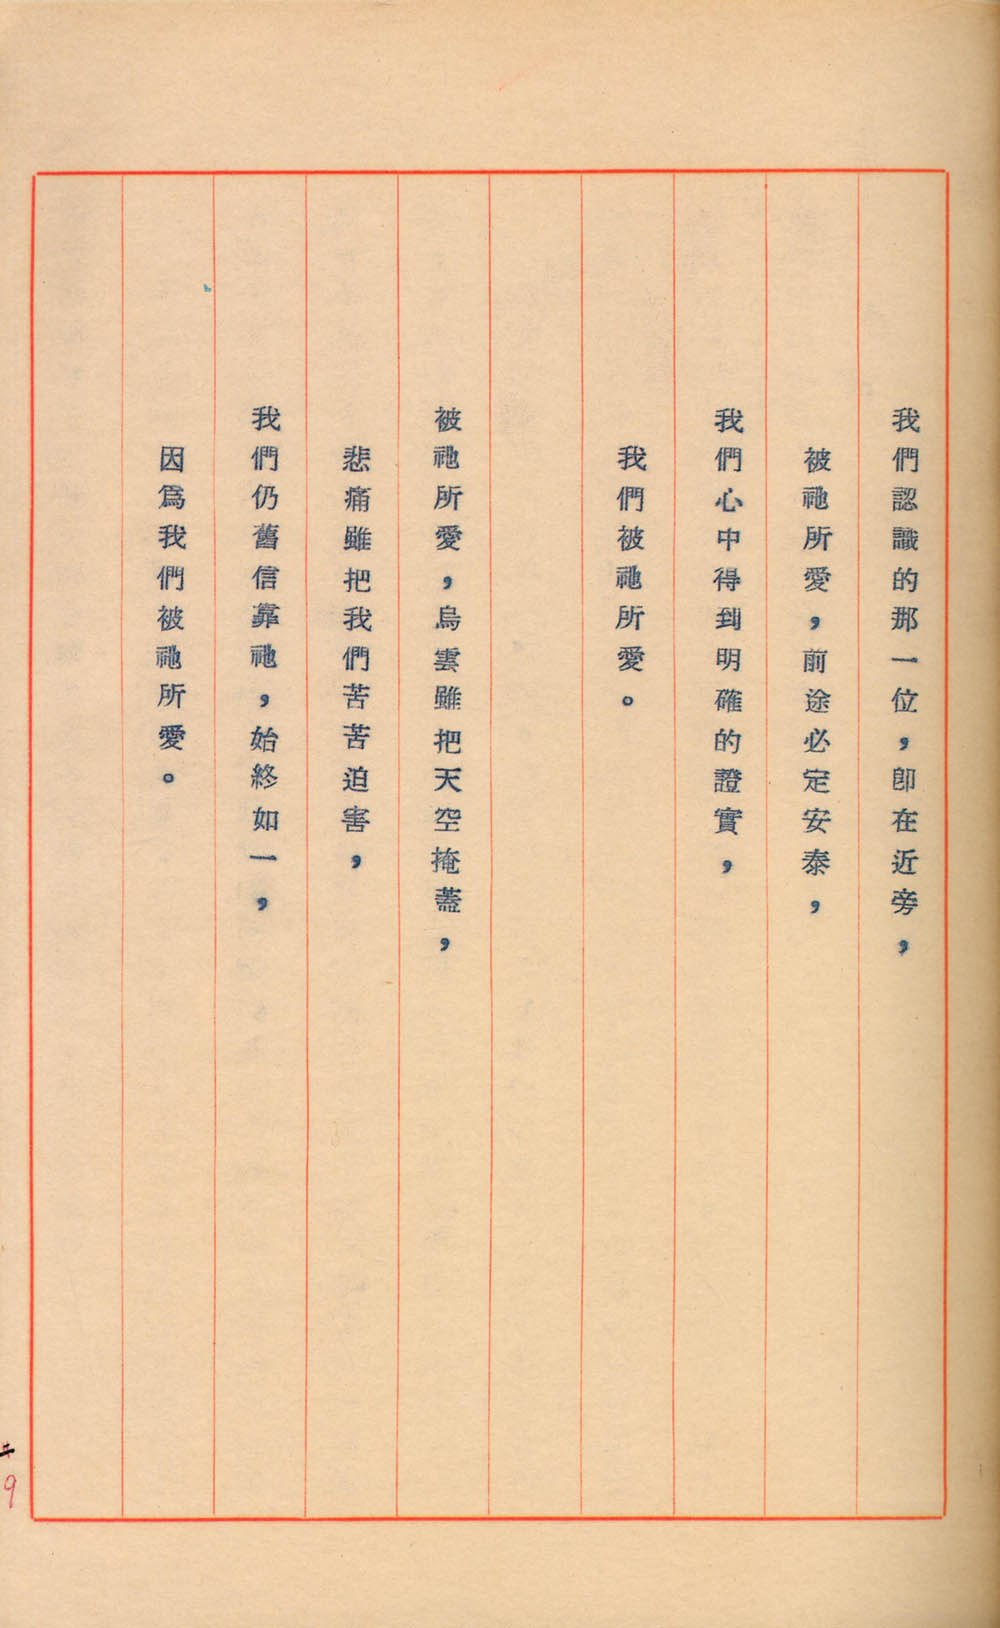 我們認識的那一位，卽在近旁，
被祂所愛，前途必定安泰，
我們心中得到明確的證實，
我們被祂所愛。
被祂所愛，烏雲雖把天空掩蓋，
悲痛雖把我們苦苦迫害，
我們仍舊信靠祂，始終如一，
因爲我們被祂所愛。
9